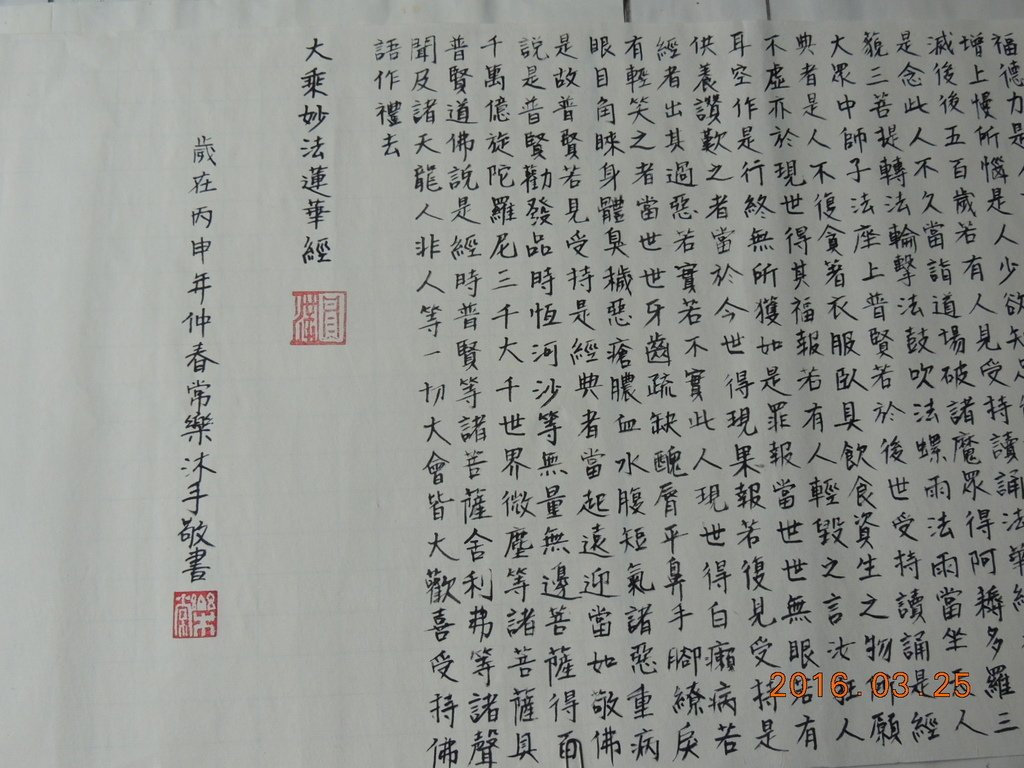 福德力是
增上慢所惱是人少欲知足
滅後後五百歲若有人見受持讀誦法華經
是念此人不久當詣道場破諸魔眾得阿耨多羅三
藐三菩提轉法輪擊法鼓吹法螺雨法雨當坐天人
大眾中師子法座上普賢若於後世受持讀誦是經
典者是人不復貪著衣服臥具飲食資生之物所願
不虛亦於現世得其福報若有人輕毀之言汝狂人
耳空作是行終無所獲如是罪報當世世無眼若有
供養讚歎之者當於今世得現果報若復見受持是
經者出其過惡若實若不實此人現世得白癩病若
有輕笑之者當世世牙齒疏缺醜脣平鼻手腳繚戾
眼目角睞身體臭穢惡瘡膿血水腹短氣諸惡重病
是故普賢若見受持是經典者當起遠迎當如敬佛
說是普賢勸發品時恆河沙等無量無邊菩薩得百
千萬億旋陀羅尼三千大千世界微塵等諸菩薩具
普賢道佛說是經時普賢等諸菩薩舍利弗等諸聲
聞及諸天龍人非人等一切大會皆大歡喜受持佛
語作禮去
大乘妙法蓮華經
歲在丙申年仲春常樂沐手敬書
2016.03.25